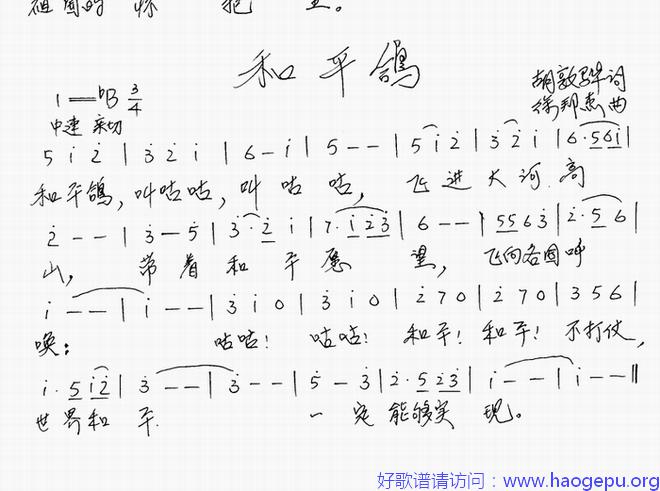 祖国的怀抱里。
和平鸽
1=♭B 3/4
胡敦骅词
中速 亲切
徐邦杰曲
5 i̇ 2̇ | 3̇ 2̇ i̇ | 6 - i̇ | 5 - - | 5 i̇ 2̇ | 3̇ 2̇ i̇ | 6·5 6 i̇ |
和平鸽,叫咕咕,叫咕咕,飞进大河高
2̇ - - | 3̇ - 5̇ | 3̇·2̇ i̇ | 7·i̇ 2̇ 3̇ | 6 - - | 5 5 6 3̇ | 2̇·5 6 |
山,带着和平愿望,飞向各国呼
i̇ - - | i̇ - - | 3̇ i̇ 0 | 3̇ i̇ 0 | 2̇ 7 0 | 2̇ 7 0 | 3 5 6 |
唤:咕咕!咕咕!和平!和平!不打仗,
i̇·5 i̇ 2̇ | 3̇ - - | 3̇ - - | 5̇ - 3̇ | 2̇·5 2̇ 3̇ | i̇ - - | i̇ - - ||
世界和平.一定能够实现。
好歌谱请访问:www.haogepu.org